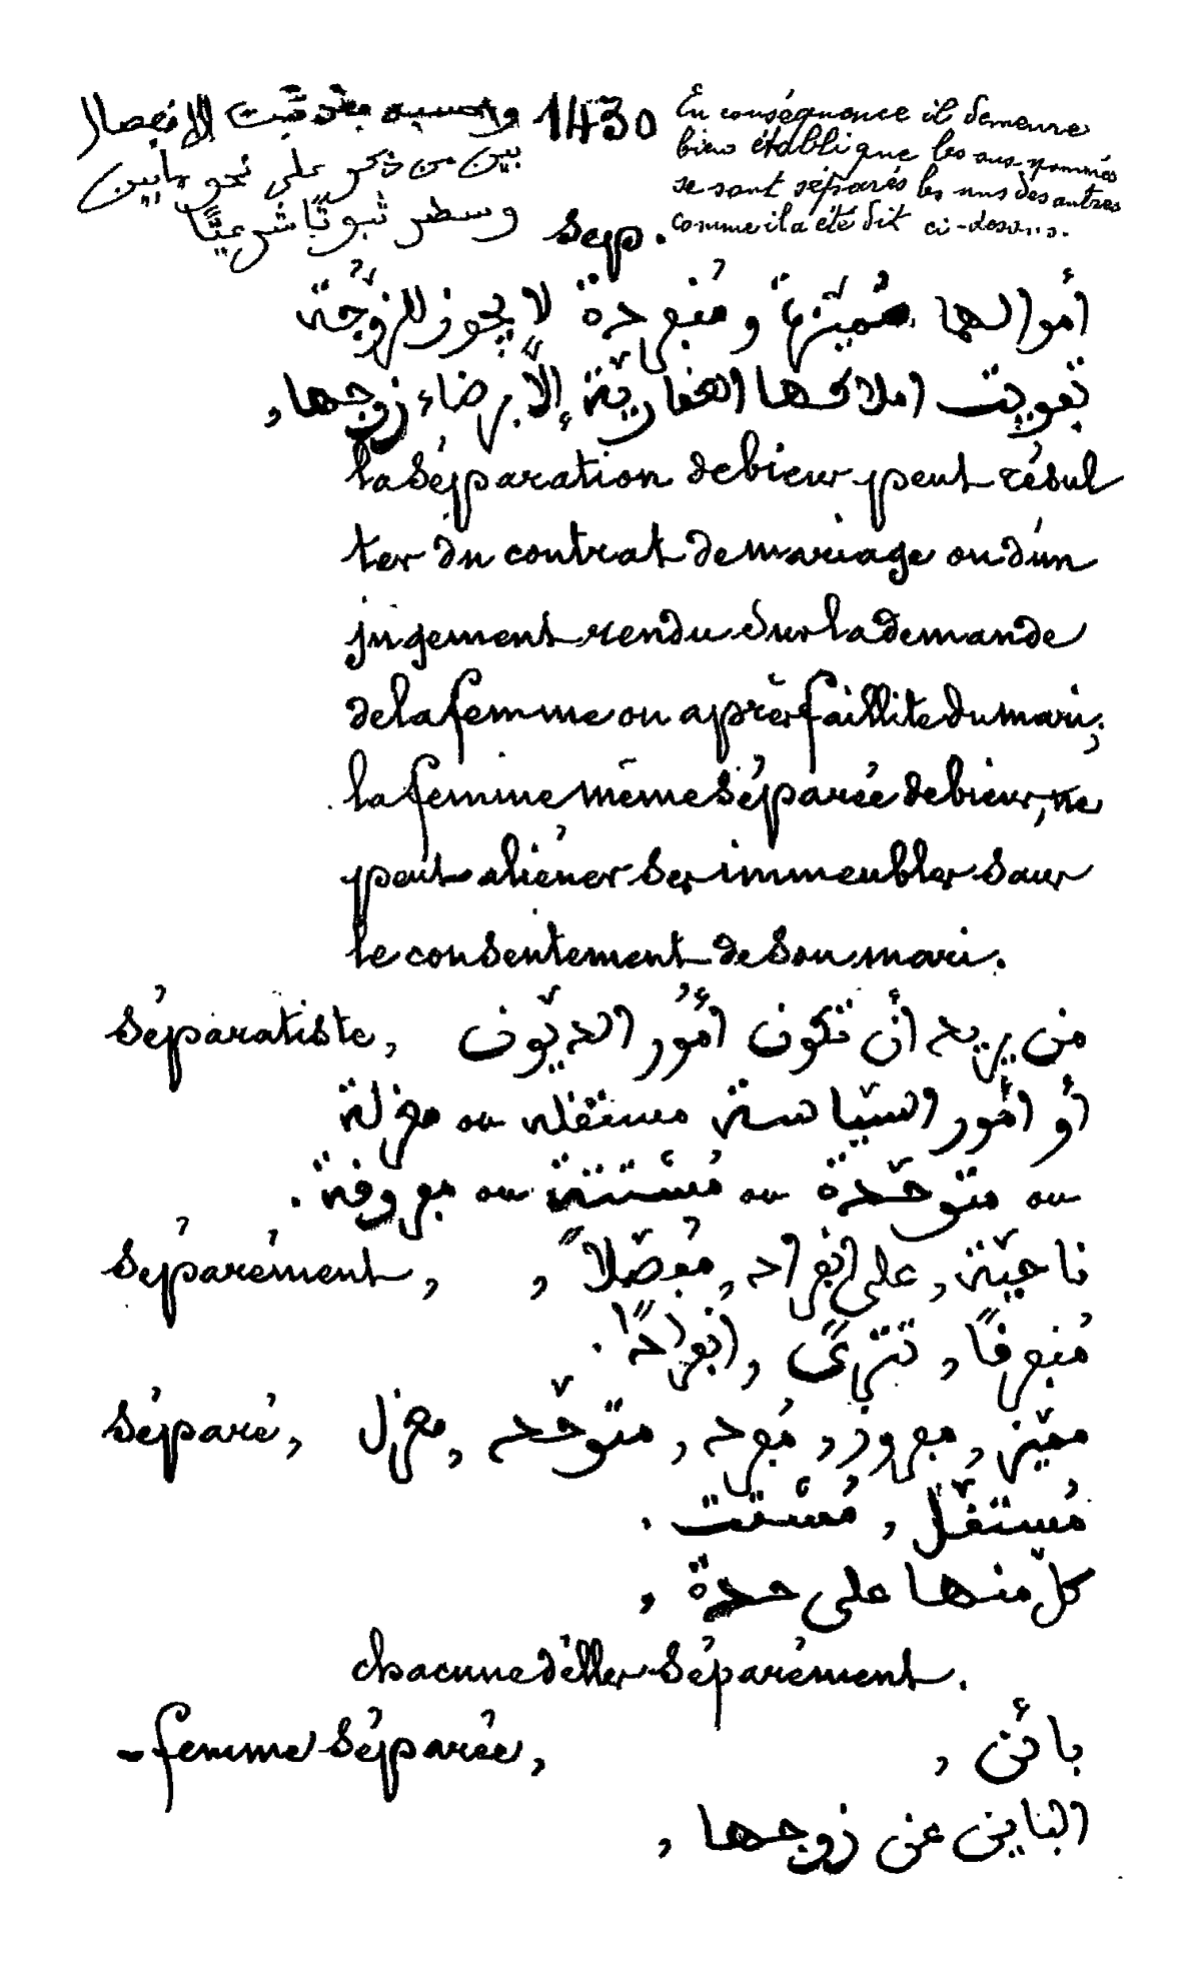 1430
وبحسبه فقد ثبت الانفصال
بين من ذكر على نحو ما بين
وسطر ثبوتًا شرعيًّا
En conséquence il demeure
bien établi que les sus-nommés
se sont séparés les uns des autres
comme il a été dit ci-dessus.
Sep.
أموالها متميّزة ومنفردة لا يجوز للزوجة
تفويت املاكها العقاريّة إلّا برضاء زوجها,
la séparation de biens peut résul
ter du contrat de mariage ou d'un
jugement rendu sur la demande
de la femme ou après faillite du mari;
la femme même séparée de biens, ne
peut aliéner ses immeubles sans
le consentement de son mari.
séparatiste, من يريد أن تكون أمُور الديّون
أو أمور السيّاسة مستقلة ou معزلة
ou متوحّدة ou مُشتتة ou مفروقة.
séparément, ناحيّة, على انفراد, مُفصّلاً,
مُفرقًا, تترىً, انفرادًا.
séparé, مميّز, مفروز, مُفرد, متوحّد, معزل,
مُستقلّ, مُشتت.
كلّ منها على حدة,
chacune d'elles séparément.
- femme séparée, بائن,
الباين عن زوجها,